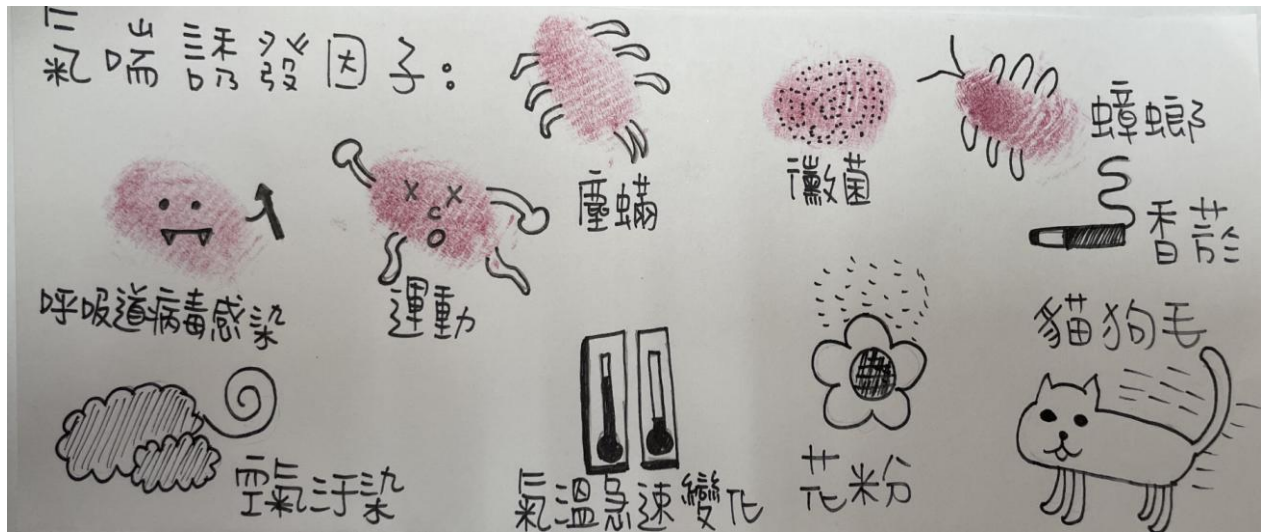 氣喘誘發因子：
塵蟎
黴菌
蟑螂
香菸
呼吸道病毒感染
運動
貓狗毛
空氣汙染
氣溫急速變化
花粉